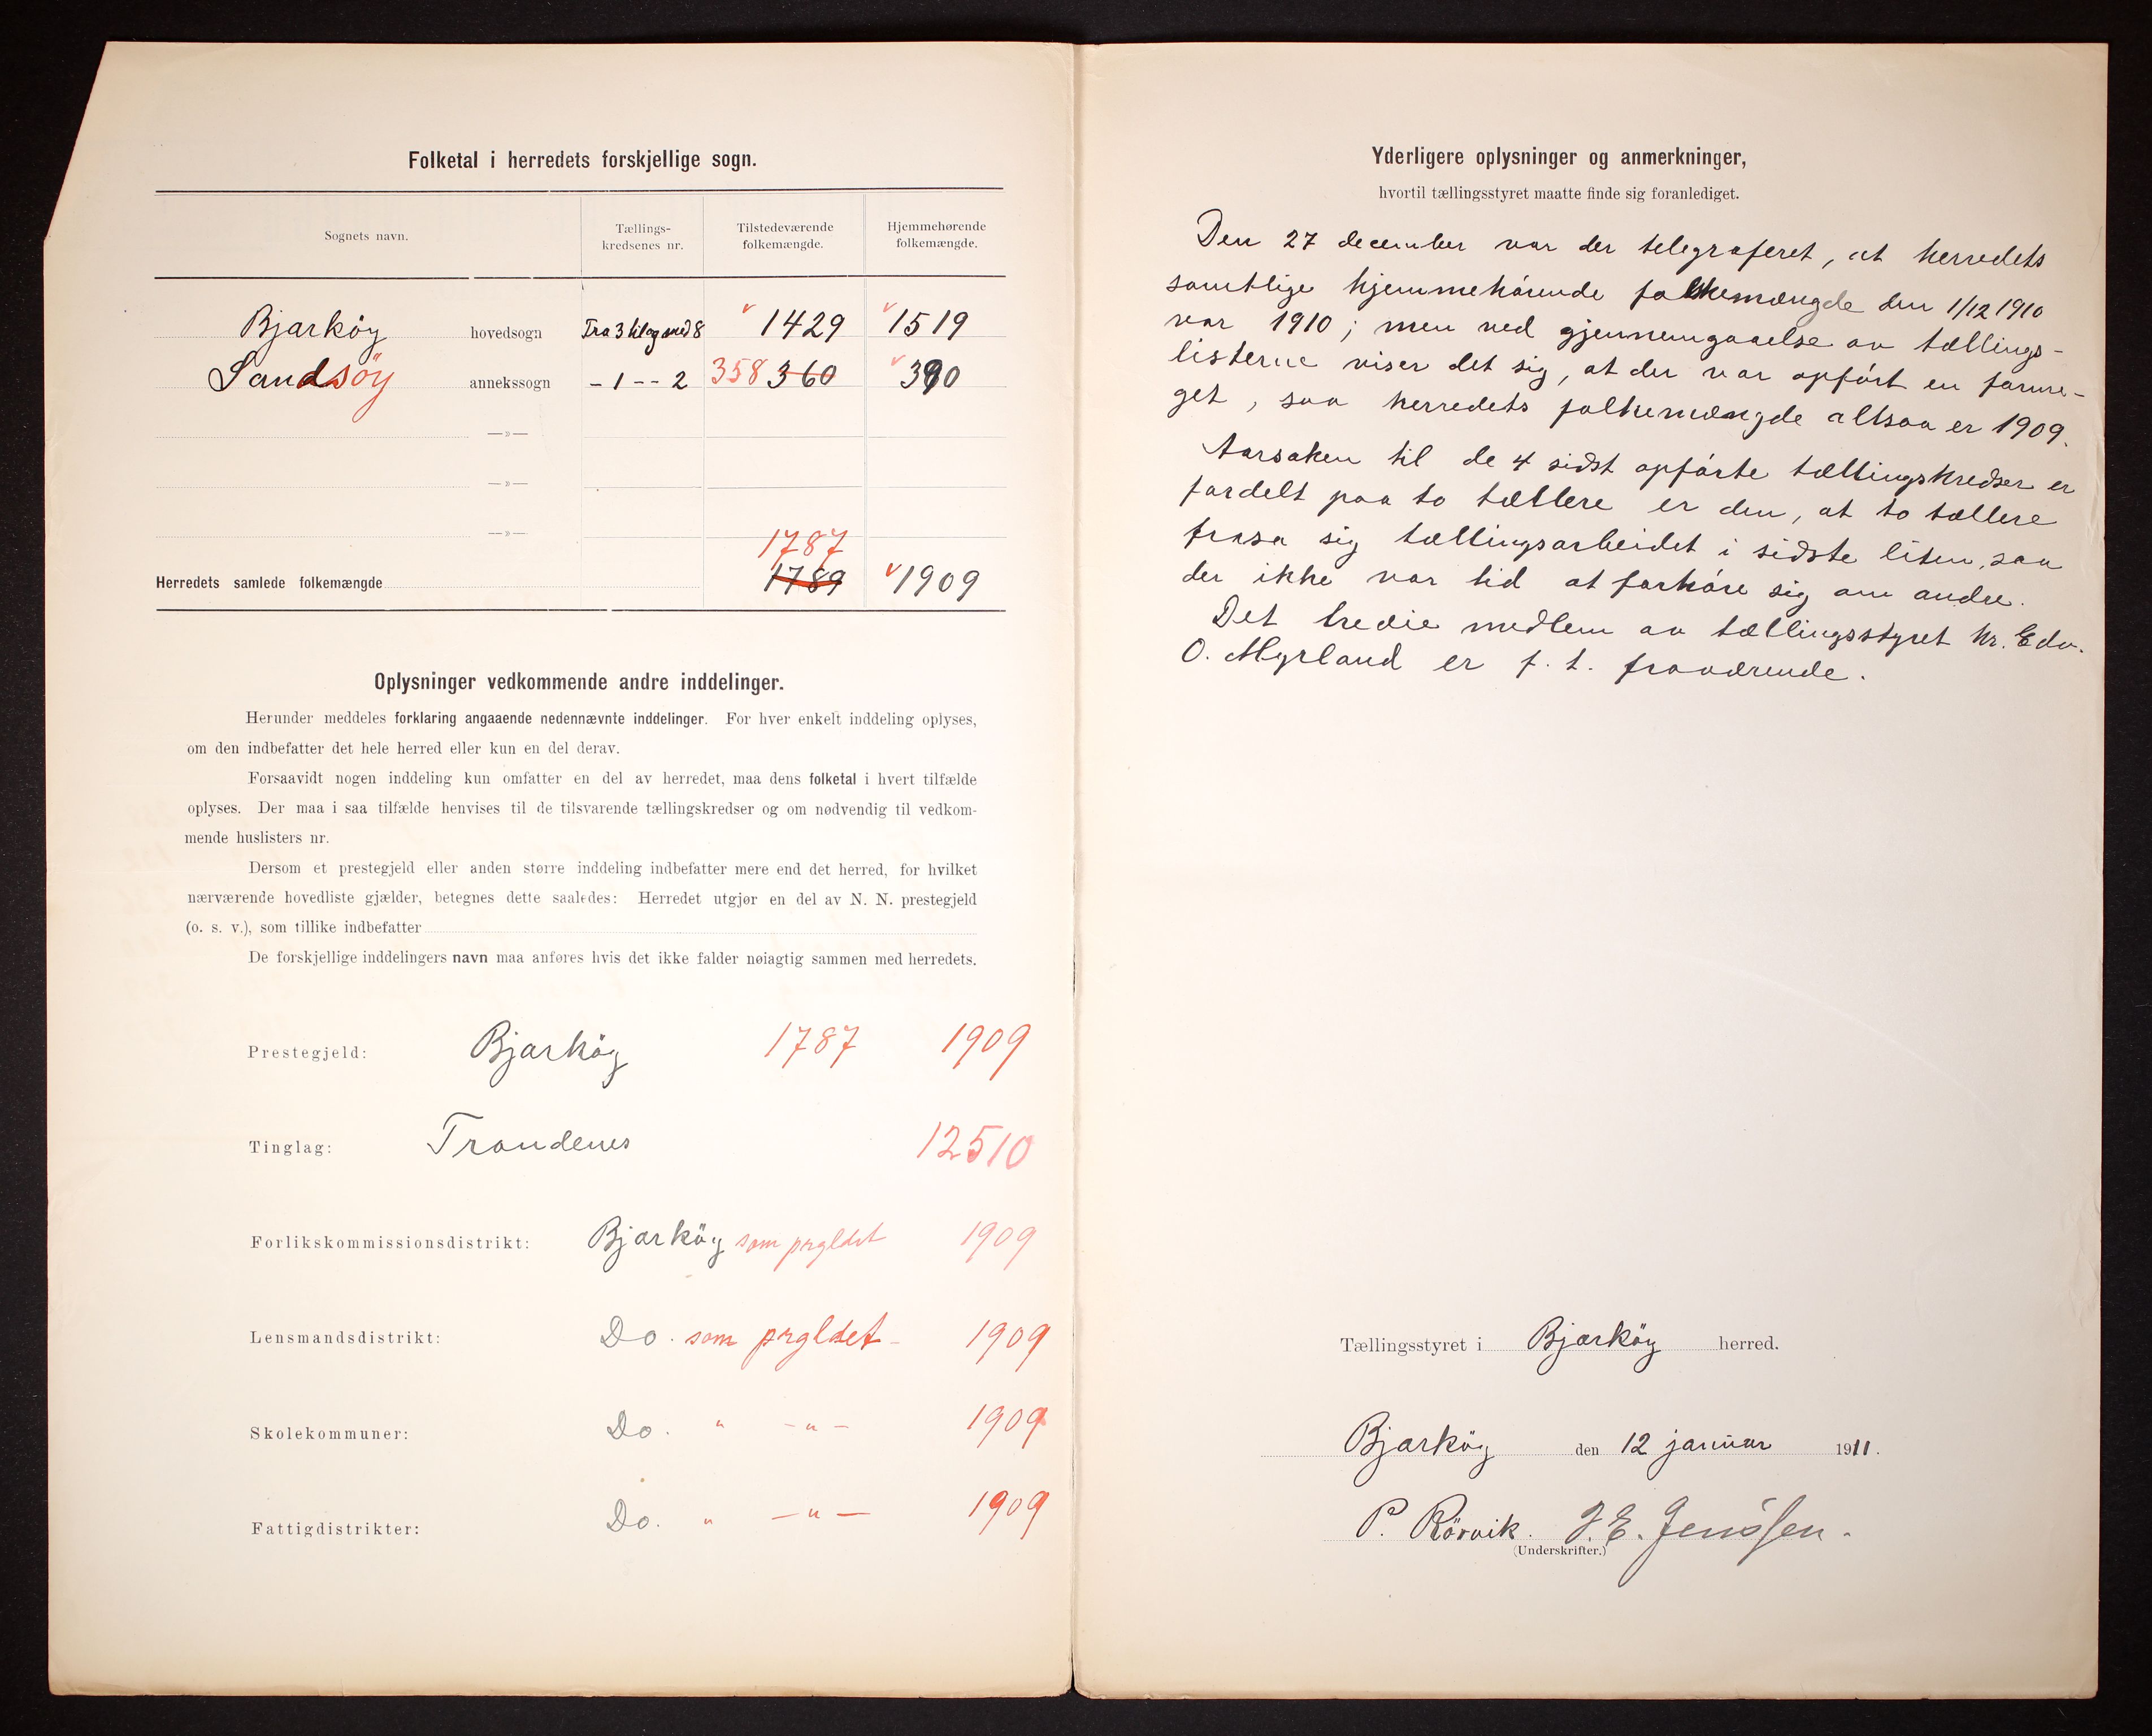 Folketal i herredets forskjellige sogn.
Sognets navn.
Tællings-
kredsenes nr.
Tilstedeværende
folkemængde.
Hjemmehørende
folkemængde.
Bjarköy hovedsogn Fra 3 til og med 8 1429 1519
Sandsöy annekssogn – 1 – – 2 358 360 390
—»—
—»—
—»—
1787
Herredets samlede folkemængde 1789 1909
Oplysninger vedkommende andre inddelinger.
Herunder meddeles forklaring angaaende nedennævnte inddelinger. For hver enkelt inddeling oplyses,
om den indbefatter det hele herred eller kun en del derav.
Forsaavidt nogen inddeling kun omfatter en del av herredet, maa dens folketal i hvert tilfælde
oplyses. Der maa i saa tilfælde henvises til de tilsvarende tællingskredser og om nødvendig til vedkom-
mende huslisters nr.
Dersom et prestegjeld eller anden større inddeling indbefatter mere end det herred, for hvilket
nærværende hovedliste gjælder, betegnes dette saaledes: Herredet utgjør en del av N. N. prestegjeld
(o. s. v.), som tillike indbefatter
De forskjellige inddelingers navn maa anføres hvis det ikke falder nøiagtig sammen med herredets.
Prestegjeld: Bjarköy 1787 1909
Tinglag: Trondenes 12510
Forlikskommissionsdistrikt: Bjarköy som prgldet 1909
Lensmandsdistrikt: Do. som prgldet – 1909
Skolekommuner: Do. " –"– 1909
Fattigdistrikter: Do. " –"– 1909
Yderligere oplysninger og anmerkninger,
hvortil tællingsstyret maatte finde sig foranlediget.
Den 27 december var der telegraferet, at herredets
samtlige hjemmehørende folkemængde den 1/12 1910
var 1910; men ved gjennemgaaelse av tællings-
listerne viser det sig, at der var opført en forme-
get, saa herredets folkemængde altsaa er 1909.
Aarsaken til de 4 sidst opførte tællingskredser er
fordelt paa to tællere er den, at to tællere
frasa sig tællingsarbeidet i sidste liten, saa
der ikke var tid at forhøre sig om andre.
Det tredie medlem av tællingsstyret hr. Edv.
O. Myrland er f. t. fraværende.
Tællingsstyret i Bjarköy herred.
Bjarköy den 12 januar 1911.
P. Rörvik. J. E. Jenssen.
(Underskrifter.)